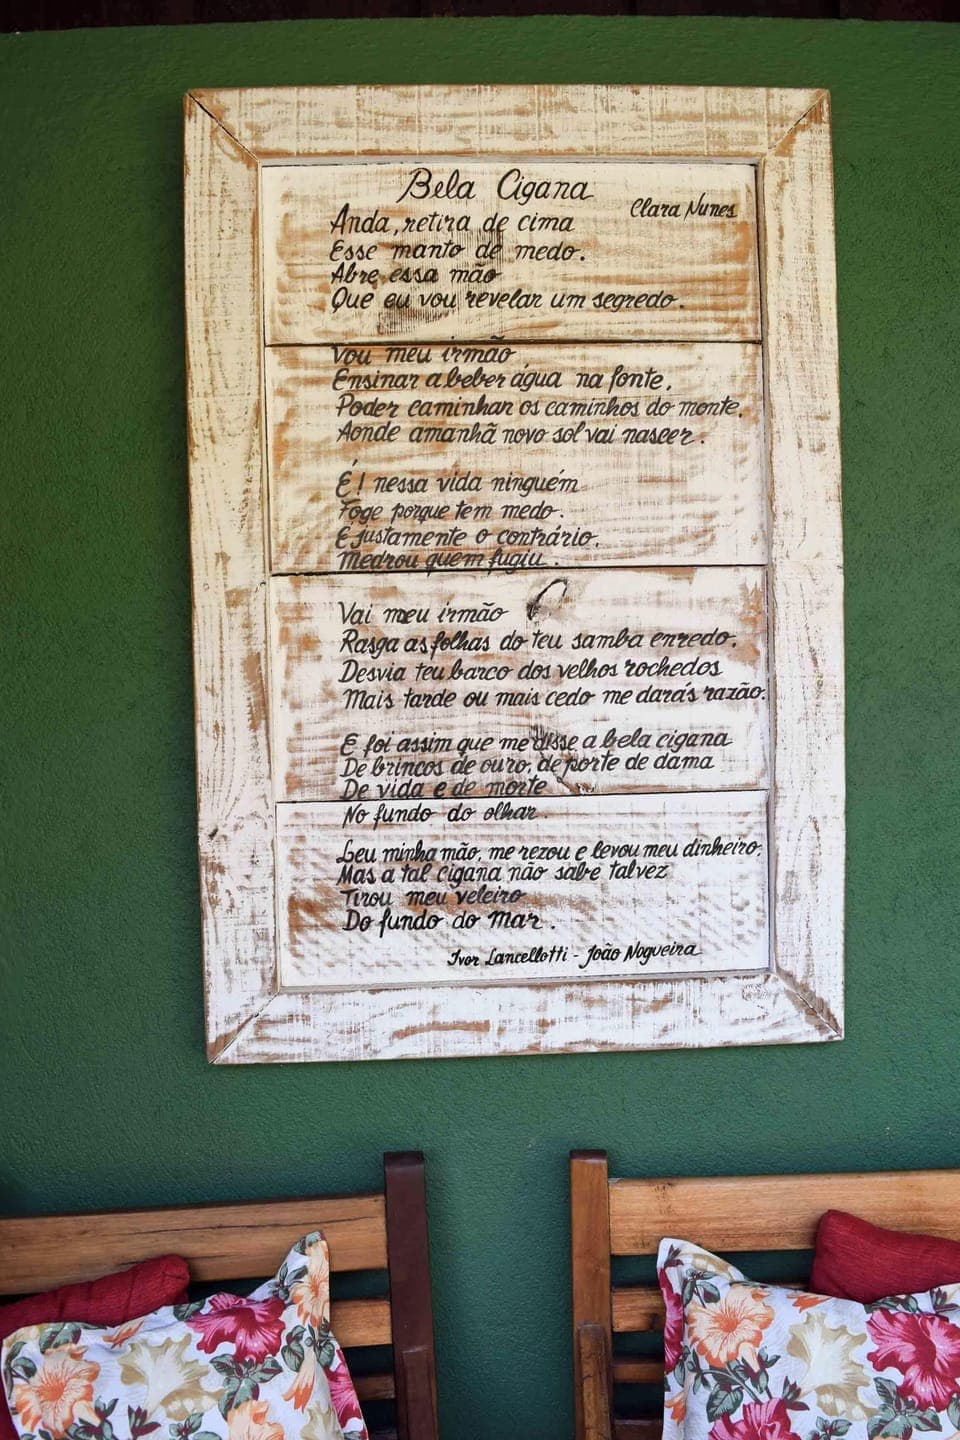 Bela Cigana
Clara Nunes
Anda, retira de cima
Esse manto de medo.
Abre essa mão
Que eu vou revelar um segredo.
Vou meu irmão
Ensinar a beber água na fonte,
Poder caminhar os caminhos do monte,
Aonde amanhã novo sol vai nascer.
É! nessa vida ninguém
Foge porque tem medo.
É justamente o contrário,
Medrou quem fugiu.
Vai meu irmão
Rasga as folhas do teu samba enredo.
Desvia teu barco dos velhos rochedos
Mais tarde ou mais cedo me darás razão.
E foi assim que me disse a bela cigana
De brincos de ouro, de porte de dama
De vida e de morte
No fundo do olhar.
Leu minha mão, me rezou e levou meu dinheiro.
Mas a tal cigana não sabe talvez
Tirou meu veleiro
Do fundo do Mar.
Ivor Lancellotti - João Nogueira